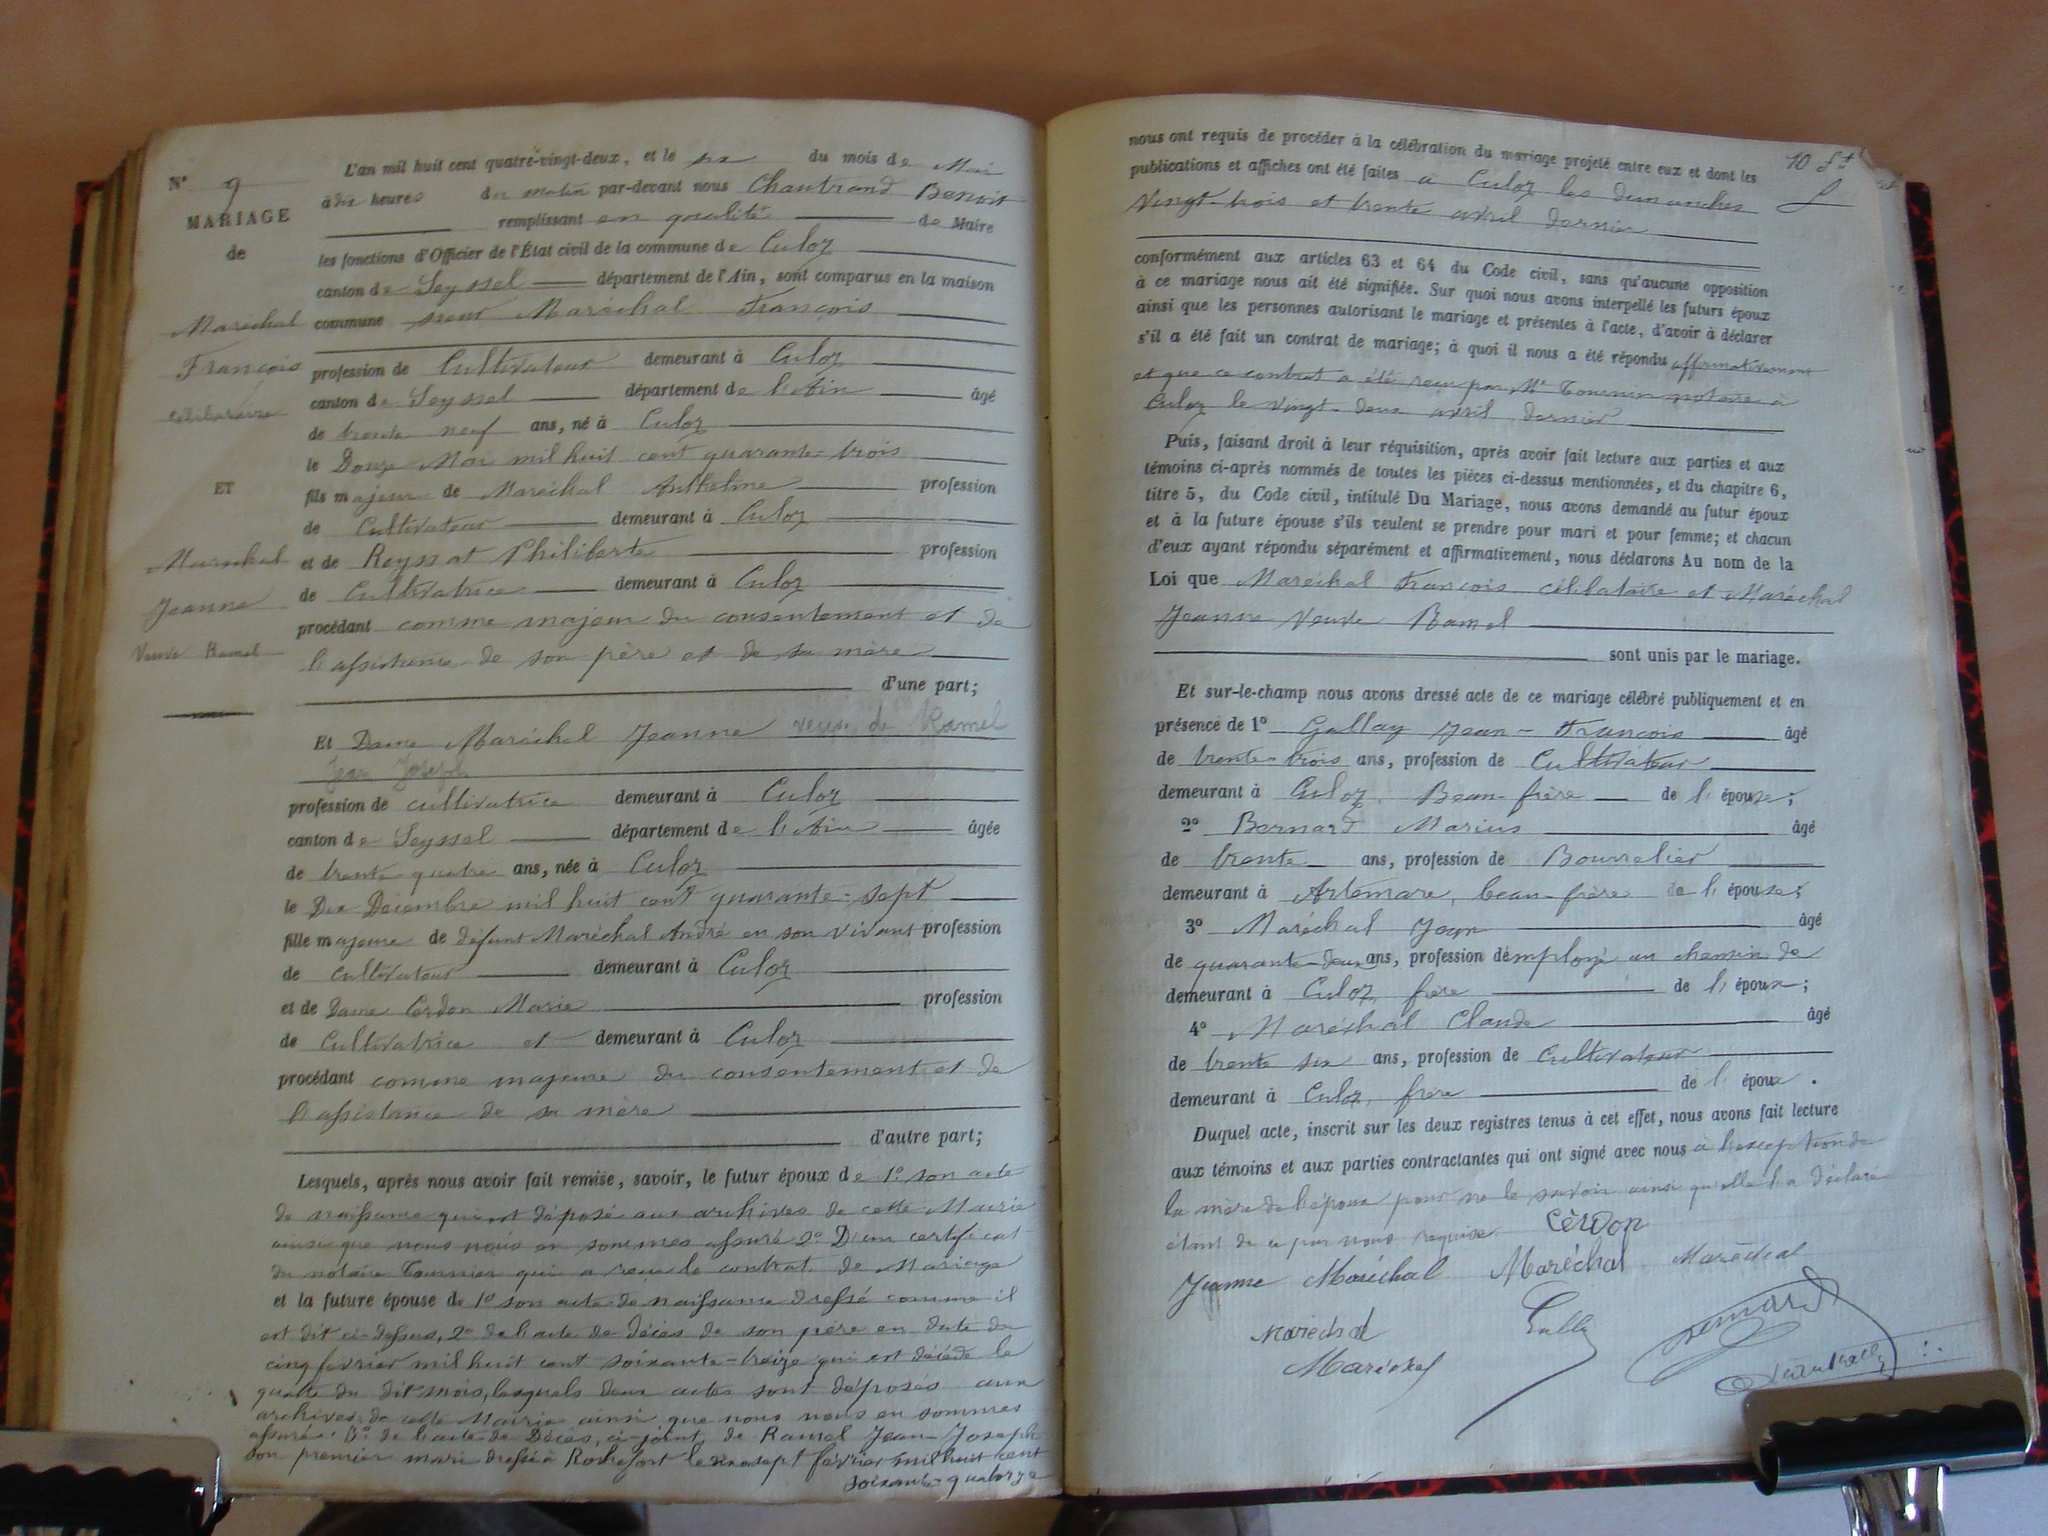 N° 9
MARIAGE
de
Maréchal
François
célibataire
ET
Maréchal
Jeanne
Veuve Ramel
L'an mil huit cent quatre-vingt-deux, et le six du mois de Mai
à dix heures du matin par-devant nous Chautrand Benoit
remplissant en qualité de Maire
les fonctions d'Officier de l'État civil de la commune de Culoz
canton de Seyssel département de l'Ain, sont comparus en la maison
commune sieur Maréchal François
profession de Cultivateur demeurant à Culoz
canton de Seyssel département de l'Ain âgé
de trente neuf ans, né à Culoz
le Douze Mai mil huit cent quarante-trois
fils majeur de Maréchal Anthelme profession
de Cultivateur demeurant à Culoz
et de Reyssat Philiberte profession
de Cultivatrice demeurant à Culoz
procédant comme majeur du consentement et de
l'assistance de son père et de sa mère
d'une part;
Et Dame Maréchal Jeanne veuve de Ramel
Jean Joseph
profession de cultivatrice demeurant à Culoz
canton de Seyssel département de l'Ain âgée
de trente quatre ans, née à Culoz
le Dix Décembre mil huit cent quarante-sept
fille majeure de défunt Maréchal André en son vivant profession
de cultivateur demeurant à Culoz
et de Dame Cerdon Marie profession
de Cultivatrice et demeurant à Culoz
procédant comme majeure du consentement et de
l'assistance de sa mère
d'autre part;
Lesquels, après nous avoir fait remise, savoir, le futur époux de 1° son acte
de naissance qui est déposé aux archives de cette Mairie
ainsi que nous nous en sommes assuré 2° D'un certificat
du notaire Tournier qui a reçu le contrat de Mariage
et la future épouse de 1° son acte de naissance dressé comme il
est dit ci-dessus, 2° de l'acte de décès de son père en date du
cinq février mil huit cent soixante-treize qui est décédé le
quatre du dit mois, lesquels deux actes sont déposés aux
archives de cette Mairie ainsi que nous nous en sommes
assuré 3° de l'acte de Décès, ci-joint, de Ramel Jean-Joseph
son premier mari dressé à Rochefort le sept février mil huit cent
soixante-quatorze
10 f.t
nous ont requis de procéder à la célébration du mariage projeté entre eux et dont les
publications et affiches ont été faites à Culoz les dimanches
Vingt-trois et trente avril dernier
conformément aux articles 63 et 64 du Code civil, sans qu'aucune opposition
à ce mariage nous ait été signifiée. Sur quoi nous avons interpellé les futurs époux
ainsi que les personnes autorisant le mariage et présentes à l'acte, d'avoir à déclarer
s'il a été fait un contrat de mariage; à quoi il nous a été répondu affirmativement
et que ce contrat a été reçu par Me Tournier notaire à
Culoz le vingt-deux avril dernier
Puis, faisant droit à leur réquisition, après avoir fait lecture aux parties et aux
témoins ci-après nommés de toutes les pièces ci-dessus mentionnées, et du chapitre 6,
titre 5, du Code civil, intitulé Du Mariage, nous avons demandé au futur époux
et à la future épouse s'ils veulent se prendre pour mari et pour femme; et chacun
d'eux ayant répondu séparément et affirmativement, nous déclarons Au nom de la
Loi que Maréchal François célibataire et Maréchal
Jeanne Veuve Ramel
sont unis par le mariage.
Et sur-le-champ nous avons dressé acte de ce mariage célébré publiquement et en
présence de 1° Gallay Jean-François âgé
de trente-trois ans, profession de Cultivateur
demeurant à Culoz, Beau-frère de l'épouse;
2° Bernard Marius âgé
de trente ans, profession de Bourrelier
demeurant à Artemare, beau-frère de l'épouse;
3° Maréchal Jean âgé
de quarante-deux ans, profession d'employé au chemin de
demeurant à Culoz, frère de l'épouse;
4° Maréchal Claude âgé
de trente six ans, profession de Cultivateur
demeurant à Culoz, frère de l'épouse.
Duquel acte, inscrit sur les deux registres tenus à cet effet, nous avons fait lecture
aux témoins et aux parties contractantes qui ont signé avec nous à l'exception de
la mère de l'époux pour ne le savoir ainsi qu'elle l'a déclaré
étant de ce par nous requise. Cerdon
Jeanne Maréchal Maréchal Maréchal
Maréchal Bernard
Maréchal